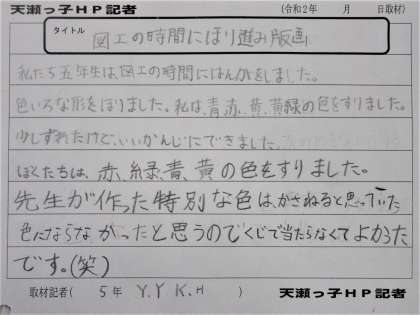 天瀬っ子HP記者 (令和2年 月 日取材)
タイトル 図工の時間にほり進み版画
私たち五年生は、図工の時間にはんがをしました。
色いろな形をほりました。私は、青、赤、黄、黄緑の色をすりました。
少しずれたけど、いいかんじにできました。
ぼくたちは、赤、緑、青、黄の色をすりました。
先生が作った特別な色は、かさねると思っていた
色にならなかったと思うのでくじで当たらなくてよかった
です。(笑)
取材記者( 5年 Y.Y K.H ) 天瀬っ子HP記者